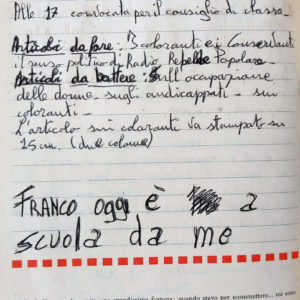 Alle 17 convocata per il consiglio di classe_
Articoli da fare: I coloranti e i Conservanti
il senso politico di Radio Popolare_
Articoli da battere: Sull'occupazione
delle donne sugli andicappati _ sui
coloranti _
L'articolo sui coloranti va stampato su
15 cm. (due colonne)
FRANCO oggi è a
scuola da me
quando stavo per scommettere... mi sono